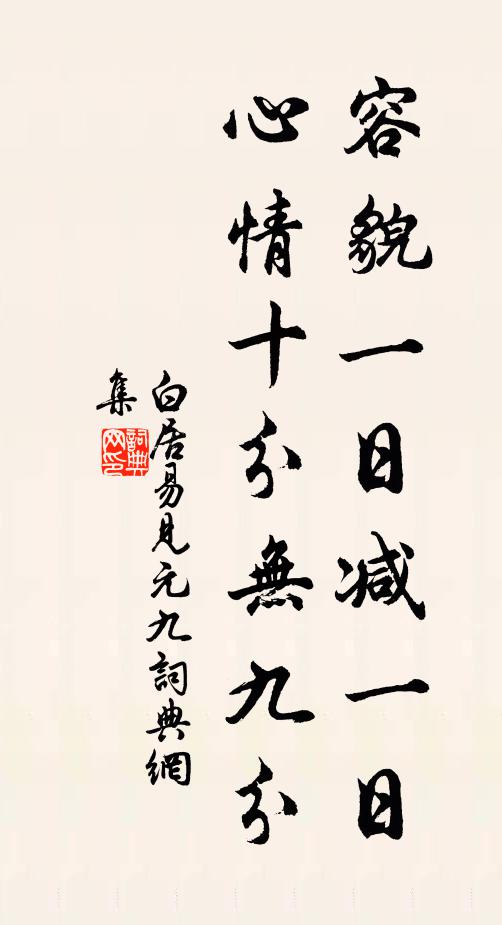 容貌一日减一日
心情十分無九分
白居易見元九詞典網
集
詞典网印